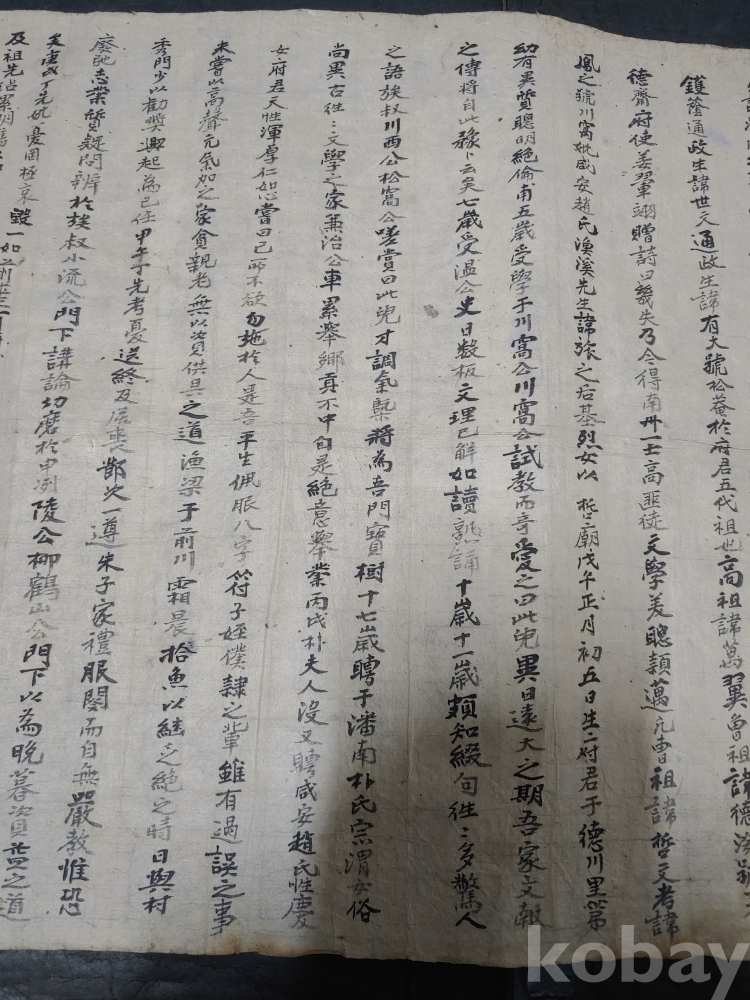 鑊蔭通政生諱世文通政生諱有大號松菴於府君五代祖也高祖諱萬翼曾祖諱德
德齋府使姜翬翊贈詩曰幾失乃今得南卅一士高匪徒文學美聰穎邁凡曹祖諱哲文考諱
鳳之號川窩妣咸安趙氏漁溪先生諱旅之后基烈女以哲廟戊午正月初五日生府君于德川里第
幼有異質聰明絶倫甫五歲受學于川窩公川窩公試教而奇愛之曰此兒異日遠大之期吾家文獻
之傳將自此豫卜云矣七歲受溫公史日數板文理已解如讀熟誦十歲十一歲頗知綴句往〻多驚人
之語族叔川西公松窩公嗟賞曰此兒才調氣槩將為吾門寶樹十七歲聘于潘南朴氏宗渭女俗
尚異古往〻文學之家兼治公車累舉鄉貢不中自是絶意舉業丙戌朴夫人沒又聘咸安趙氏性慶
女府君天性渾厚仁恕嘗曰己所不欲勿施於人是吾平生佩服八字符子姪僕隷之輩雖有過誤之事
未嘗以高聲元氣加之家貧親老無以資供具之道漁梁于前川霜晨拾魚以繼乏絶之時日與村
秀門少以勸奬興起為己任甲午先考憂送終及居喪節次一遵朱子家禮服闋而自無嚴教惟恐
廢弛志業質疑問辨於族叔小流公門下講論切磨於申冽陵公柳鶴山公門下以為晚暮資益之道
矣庚戌丁先妣憂罔極哀毀一如前
及祖先